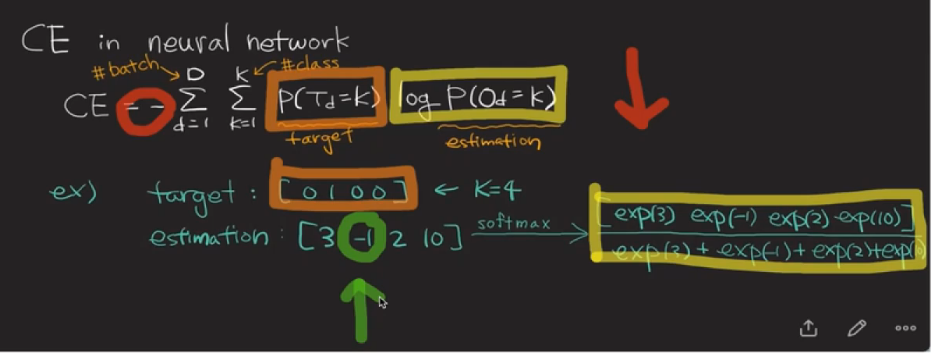 CE in neural network
#batch D K #class
CE = - Σ Σ P(Td=k) log P(Od=k)
d=1 k=1 target estimation
ex) target : [ 0 1 0 0 ] ← K=4
estimation : [3 -1 2 10] softmax → [exp(3) exp(-1) exp(2) exp(10)]
exp(3) + exp(-1) + exp(2) + exp(10)